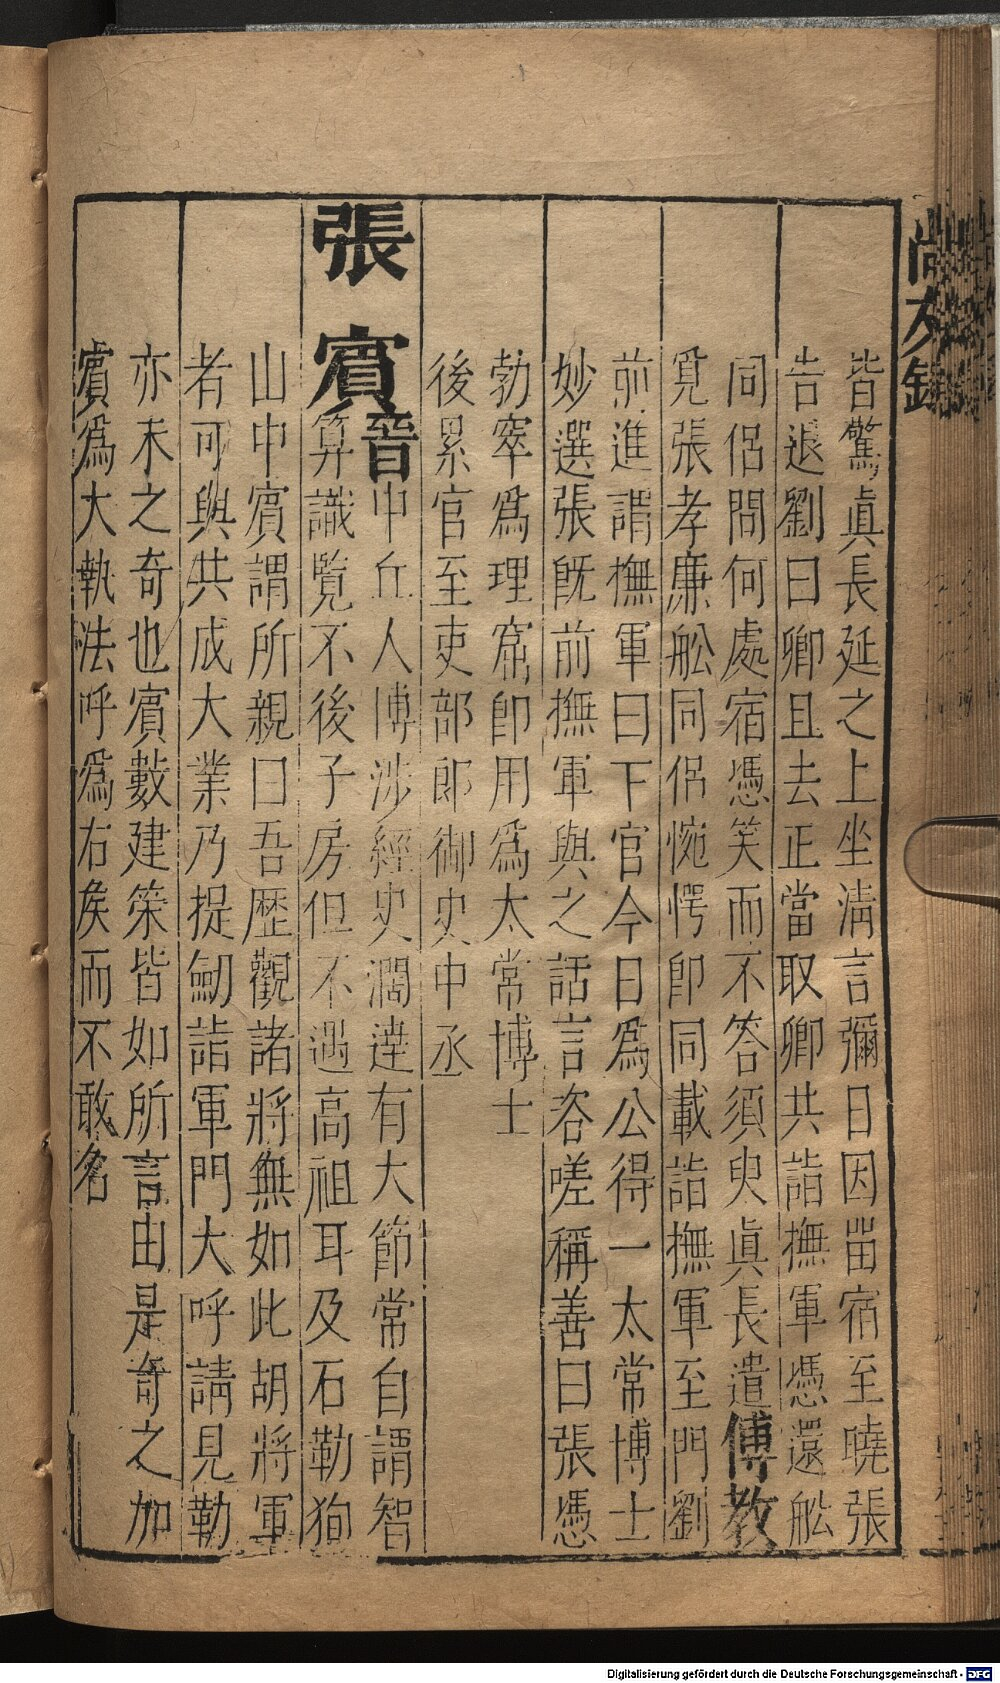 尚友錄
皆驚眞長延之上坐清言彌日因畱宿至曉張
告退劉曰卿且去正當取卿共詣撫軍憑還舩
同侶問何處宿憑笑而不答須臾眞長遣傅教
覓張孝廉舩同侶惋愕卽同載詣撫軍至門劉
前進謂撫軍曰下官今日爲公得一太常博士
妙選張旣前撫軍與之話言咨嗟稱善曰張憑
勃窣爲理窟卽用爲太常博士
後累官至吏部郞御史中丞
張賔晉中丘人博涉經史濶達有大節常自謂智
算識覽不後子房但不遇高祖耳及石勒狥
山中賔謂所親曰吾歷觀諸將無如此胡將軍
者可與共成大業乃提劒詣軍門大呼請見勒
亦未之奇也賔數建筞皆如所言由是奇之加
賔爲大執法呼爲右矦而不敢名
Digitalisierung gefördert durch die Deutsche Forschungsgemeinschaft - DFG